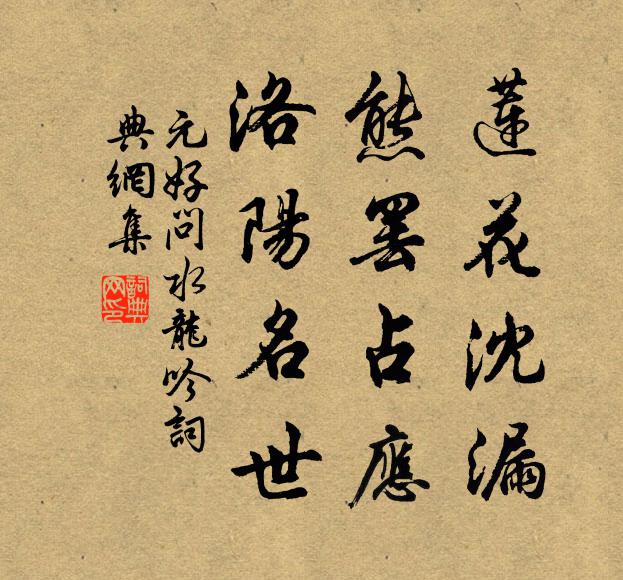 蓮花沈漏
熊罷占應
洛陽名世
元好問水龍吟詞
典網集
詞典網印